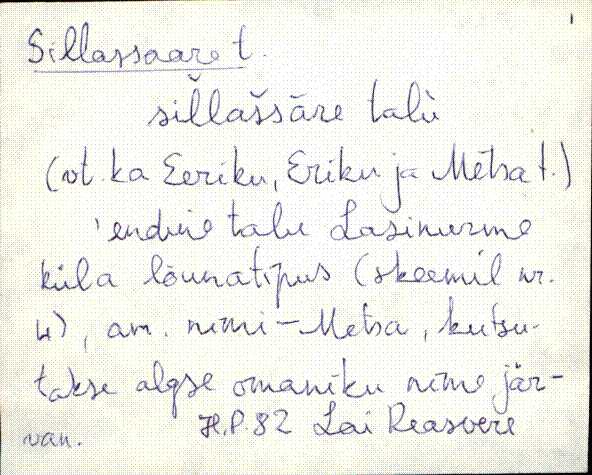 Sillassaare t.
sillašsāre talù
(vt. ka Eeriku, Eriku ja Metsa t.)
'endine talu Lasinurme
küla lõunatipus (skeemil nr.
4), am. nimi - Metsa, kutsu-
takse algse omaniku nime jär-
van. H.P. 82 Lai Reasvere